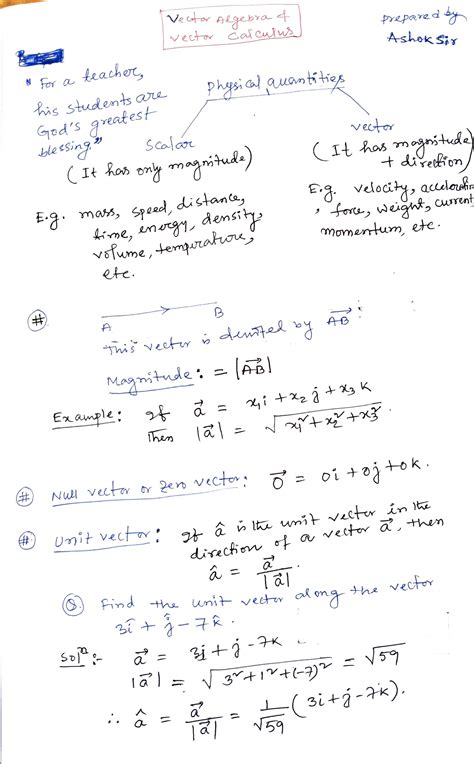 Vector Algebra &
Vector Calculus
prepared by
Ashok Sir
" For a teacher,
his students are
God's greatest
blessing."
physical quantities
Scalar
(It has only magnitude)
E.g. mass, speed, distance,
time, energy, density,
volume, temperature,
etc.
vector
(It has magnitude
+ direction)
E.g. velocity, acceleration
, force, weight, current
momentum, etc.
# A B
This vector is denoted by \(\vec{AB}\):
Magnitude: = |\(\vec{AB}\)|
Example: If \(\vec{a}\) = x₁i + x₂j + x₃k
Then |\(\vec{a}\)| = √(x₁² + x₂² + x₃²)
# Null vector or zero vector: \(\vec{0}\) = 0i + 0j + 0k.
# Unit vector: If â is the unit vector in the
direction of a vector \(\vec{a}\), then
â = \(\vec{a}\)/|\(\vec{a}\)|
Q. Find the unit vector along the vector
3î + ĵ - 7k̂.
Solⁿ:- \(\vec{a}\) = 3i + j - 7k
|\(\vec{a}\)| = √(3² + 1² + (-7)²) = √59
∴ â = \(\vec{a}\)/|\(\vec{a}\)| = 1/√59 (3i + j - 7k).